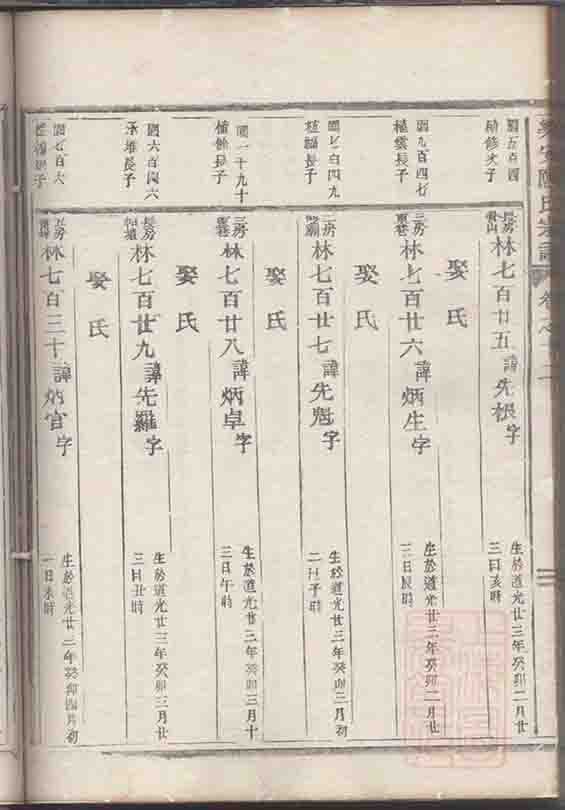 氏宗譜 卷之十二
國五百四
長房
林七百廿五諱先根字
生於道光廿三年癸卯二月廿
三日亥時
娶氏
國九百四七
植雲長子
三房
林七百廿六諱炳生字
生於道光廿三年癸卯二月廿
三日辰時
娶氏
國七百四九
植福長子
二房
林七百廿七諱先魁字
生於道光廿三年癸卯三月初
二日子時
娶氏
國一千九十
三房
林七百廿八諱炳卓字
生於道光廿三年癸卯三月十
三日午時
娶氏
國六百四六
長房
林七百廿九諱先羅字
生於道光廿三年癸卯三月廿
三日丑時
娶氏
國七百六
林七百三十諱炳官字
生於道光廿三年癸卯四月初
一日未時